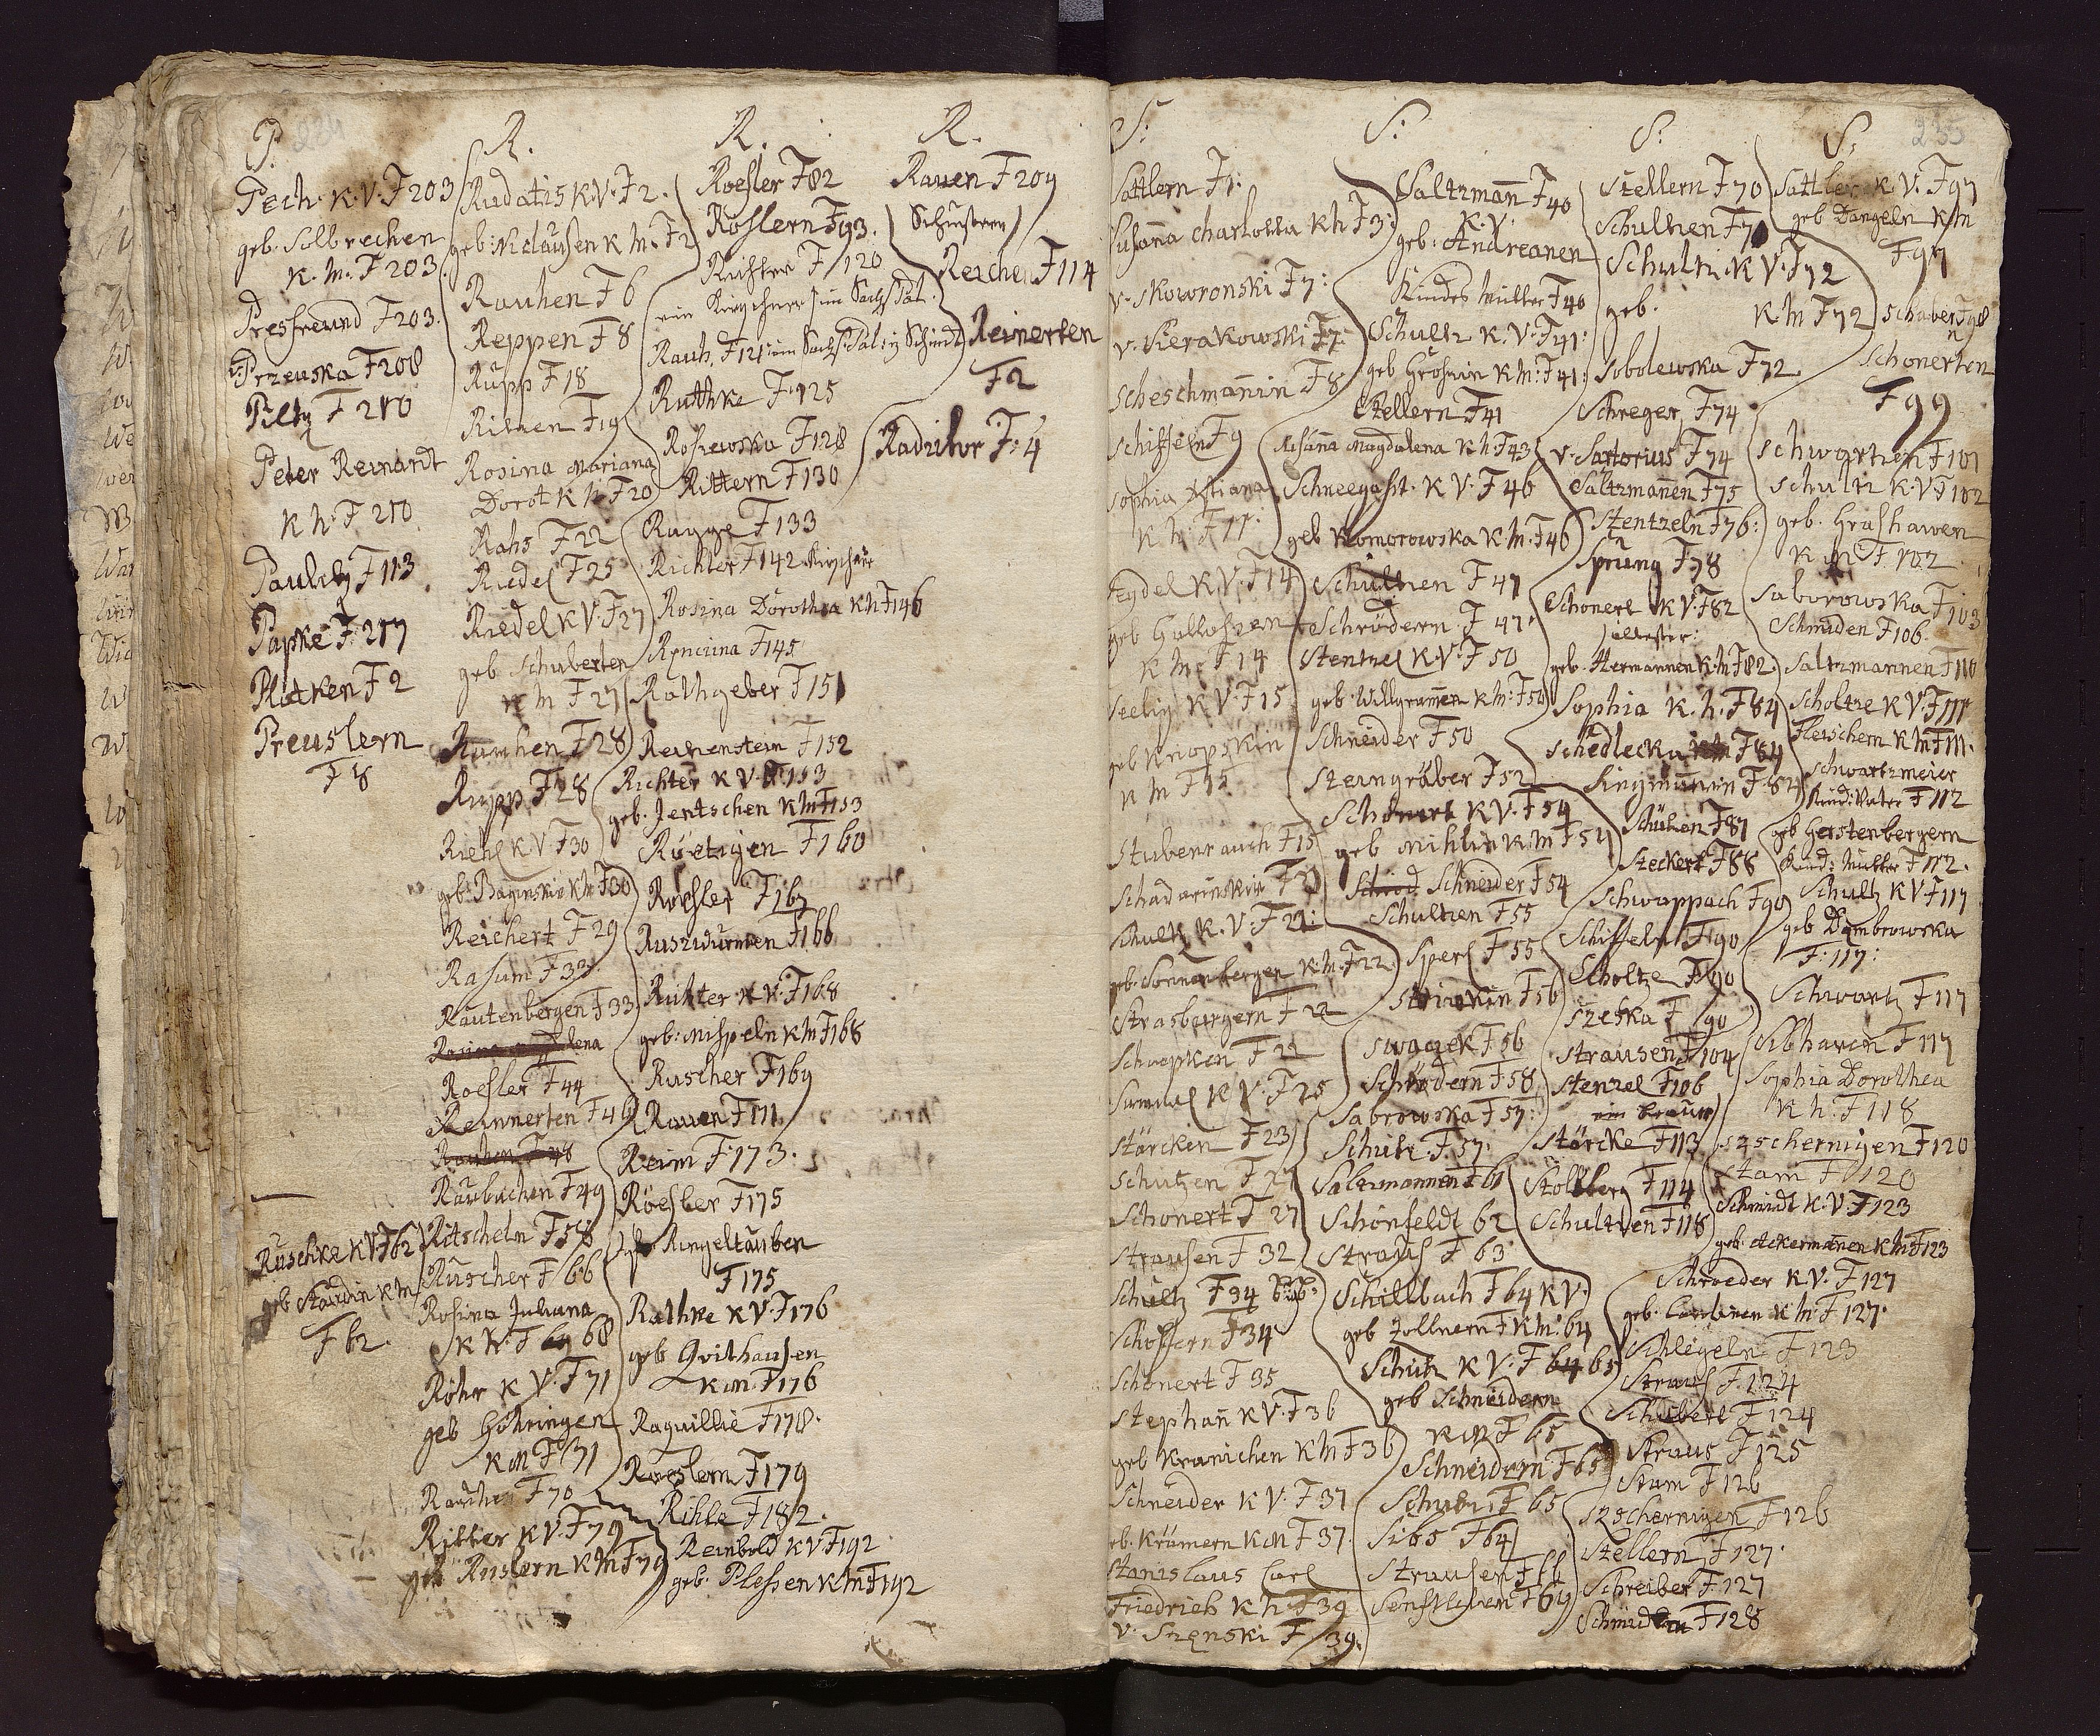 P.
Pech. K. V. F 203
geb. Solbrechen
K. M. F 203.
Presfreund F 203.
Przewska F 208
Piltz F 210
Peter Reinardt
K h. F 210
Pauly F 113
Papke F: 217
Platken F 2
Preuslern
F 8
Ruschke KV F 62
geb Staudin K M
F 62.
R.
Rudatis K.V. F 2.
geb: Nclausen K M. F 2
Rauhen F 6
Reppen F 8
Rupp F 18
Rosina Mariana
Dorot K h F 20
Rahs F 22
Riedel F 25
Riedel K V. F 27
geb Schuberten
K M F 27
Rumhen F 28
Rupp F 28
Riehl K V F 30
geb: Baginskin K M F 30
Reichert F 29
Rasum F 33
Rautenbergen F 33
Roesler F 44
Reinnerten F 46
Rauhen F 48
Raubuchen F 49
Ritscheln F 58
Ruscher F 66
Rosina Juliana
K h. F 68
Röhr K V. F 71
geb Göhringen
K M F 71
F 70
Ritter K V. F 79
geb Ruslern K M F 79
R.
Roesler F 82
Röslern F 93.
Richter F 120
ein Kirschner im Sachs Pal.
Rauh. F 121: im Sachs: Pal:
Ruthke F 125
Rosrewska F 128
Rittern F 130
Rugge F 133
Richter F 142
Rosina Dorothea K h F 146
Renciina F 145
Rathgeber F 151
Reichenstein F 152
Richter K V. F 153
geb. Jentschen K M F 153
Röetzigen F 160
Roesler F 167
Ruszwurmen F 166
Richter K V. F 168
geb: Mispeln K M F 168
Ruscher F 169
Rauen F 171
Reim F 173.
Röesler F 175
Ringeltauben
F 175
Rathke K V. F 176
geb Qvithausen
K M. F 176
Raquillie F 178.
Roeslern F 179
Rihle F 182.
Reinbold K V F 192
geb. Plessen K M F 192
R.
Rauen F 209
Schustern
Reichen F 114
Reinerten
F 2
Radzibor F: 4
S:
Sattlern F 1.
Susanna Charlotta K h F 3:
v. Skowronski F 7:
v. Sierakowski F 7:
Scheschmannin F 8
Schiffeln F 9
Sophia Xstiana
K h: F 11:
Seydel K V. F 14
K M. F 14
Seelig K V F 15
geb Knopskin
K M F 15
Stubenrauch F 15
Schadarinskin F 21
Schultz K. V. F 22:
geb. Sonnenbergen K. M. F 22
Strasburgern F 22
Schopken F 22
Samuel K V. F 25
Störckin F 23
Schutzen F 27
Schonert F 27
Strausen F 32
Schultz F 34
Schoffern F 34
Schonert F 35
Stephan K V. F 36
geb Kranichen K M F 36
Schneider K V. F 37
geb. Krämern K M F 37.
Stanislaus Carl
Friedrich K h. F 39
v. Szenski F 39.
S:
Saltzmann F 40
K. V.
geb: Andreanen
Kindes Mutter F 40
Schultz K. V. F 41:
geb Grösnin K M: F 41:
Stellern F 41
Susana Magdalena K h F 43
Schneegast. K V. F 46
geb Komorowska K. M. F 46
Schultzen F 47
Schrödern F 47.
Stentzel K. V. F 50
geb: Willgramen K M: F 50
Schneider F 50
Steingräber F 52
Schonert K V. F 54
geb Mihlin K M F 54
Schneider F 54
Schultzen F 55
Sperl F 55
F 56
Swaczek F 56
Schrödern F 58
Sabrowska F 57:
Schutz. F 57.
Saltzmannen F 61
Schönfeldt 62
Straus F 63
Schillbach F 64 K V.
geb Zollnern F K M: 64
Schutz K V. F 64 65
geb Schneidern
K M F 65
Schneidern F 65
F 65
Sibs F 64
Strausen F 66
Senstleben F 69
S:
Stellern F 70
Schultzen F 70
Schultz K V. F 72
geb. K. M F 72
Sobolewska F 72
Schreger F 74
v. Sartorius F 74
Saltzmannen F 75
Stentzeln F 76:
Sprung F 78
Schonert K V. F 82
ältester:
geb. Hermannen K M F 82
Sophia K. h. F 84
Schedlecka F 84
Singmannin F 84
Schützen F 87
Steckert F 88
Schwappach F 90
Schiffeln F 90
Scholtze F 90
Szeska F 90
Strausen F 104
Stenzel F 106
ein Brauer
Störcke F 113
Stollberg F 114
Schultzen F 118
S.
Sattler K. V. F 97
geb Dangeln K M
F 97
Schubert F 98
Schonerten
F 99
Schwartzen F 101
Schultz K. V F 102
geb. Grashauen
K M F 102
Saborowska F 103
Schmiden F 106.
Saltzmannen F 110
Scholtze K V. F 111
Fleischern K M F 111.
Schwartzmeier
Kind: Vater F 112
geb Gerstenbergern
Kind: Mutter F 112.
Schultz K V F 117
geb Dombrowska
F: 117:
Schwartz F 117
Sibharen F 117
Sophia Dorothea
K h: F 118
Szschernigen F 120
Stam F 120
Schmidt K. V. F 123
geb. Ackermannen K M F 123
Schroeder K V. F 127
geb. K M: F 127.
Schlegeln F 123
Straus F. 124
Schubert F 124
Straus F 125
Stum F 126
Szschernigen F 126
Stellern F 127.
Schreiber F 127
F 128
235